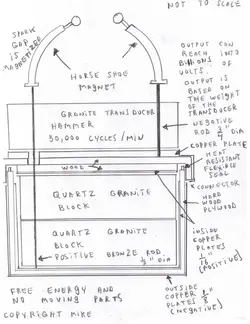 NOT TO SCALE
SPARK
GAP
IS
MAGNETIZED
HORSE SHOE
MAGNET
OUTPUT CAN
REACH INTO
BILLIONS OF
VOLTS.
OUTPUT IS
BASED ON
THE WEIGHT
OF THE
TRANSDUCER
GRANITE TRANSDUCOR
HAMMER
30,000 CYCLES/MIN
NEGATIVE
ROD 3/4" DIA
COPPER PLATE
HEAT
RESISTANT
FLEXIBLE
SEAL
WOOL
CONNECTOR
HARD
WOOD
PLYWOOD
QUARTZ GRANITE
BLOCK
QUARTZ GRANITE
BLOCK
POSITIVE BRONZE ROD
3/4" DIA
INSIDE
COPPER
PLATES
1/16"
(POSITIVE)
OUTSIDE
COPPER
PLATES 1/8"
(NEGATIVE)
FREE ENERGY AND
NO MOVING PARTS
COPYRIGHT MIKE